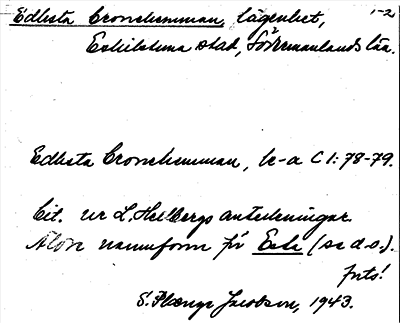 Edlesta Cronohemman, lägenhet, 1-2
Eskilstuna stad, Södermanlands län.
Edlesta Cronohemman, k-a C 1:78-79.
Cit. ur L. Hellbergs anteckningar.
Äldre namnform för Esta (se d.o.).
forts!
S. Jacobson, 1943.